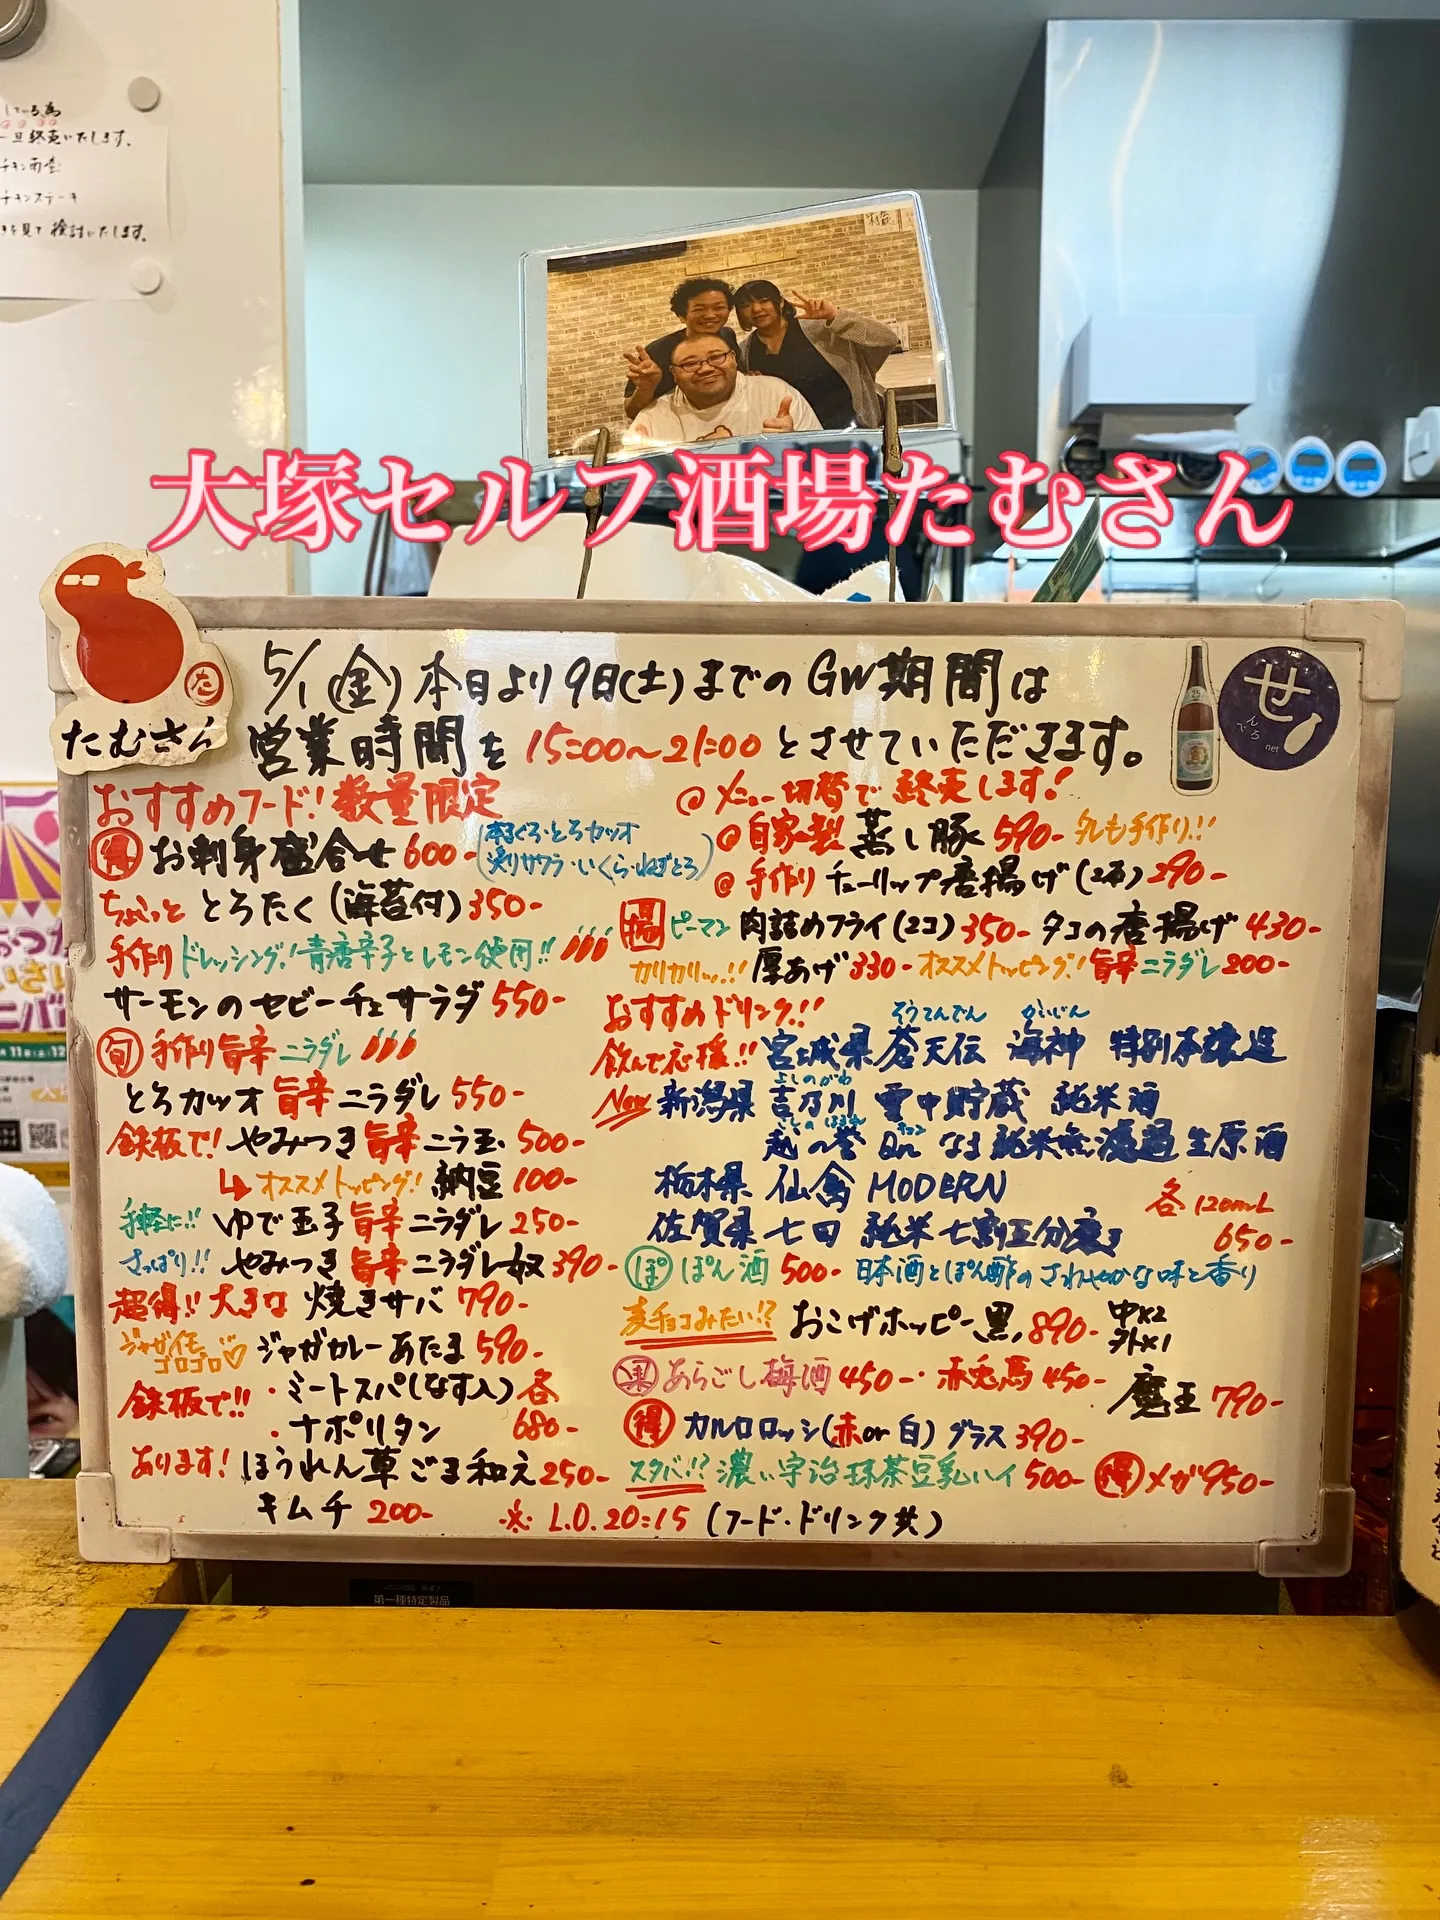 している為
一旦終売いたします。
チキン南蛮
チキンステーキ
きを見て検討いたします。
大塚セルフ酒場たむさん
た
たむさん
せ
んべろ
net
5/1(金)本日より9日(土)までのGW期間は
営業時間を15:00〜21:00とさせていただきます。
おすすめフード!数量限定
得 お刺身盛合せ 600-(本まぐろ・とろカツオ
炙りサワラ・いくら・ねぎとろ)
ちょこっと とろたく(海苔付)350-
手作りドレッシング!青唐辛子とレモン使用!!
サーモンのセビーチェサラダ 550-
旬 手作り旨辛ニラダレ
とろカツオ 旨辛ニラダレ 550-
鉄板で!やみつき旨辛ニラ玉 500-
↳オススメトッピング!納豆 100-
手軽に!!ゆで玉子旨辛ニラダレ 250-
さっぱり!!やみつき旨辛ニラダレ奴 390-
超得!!大きな 焼きサバ 790-
ジャガイモ
ゴロゴロ♡ ジャガカレーあたま 590-
鉄板で!!・ミートスパ(なす入)各
・ナポリタン 680-
あります!ほうれん草ごま和え 250-
キムチ 200-
@メニュー切替で 終売します!
@自家製 蒸し豚 590- タレも手作り!!
@手作り チューリップ唐揚げ(2本)290-
揚 ピーマン肉詰めフライ(2コ)350- タコの唐揚げ 430-
カリカリッ!!厚あげ 330- オススメトッピング!旨辛ニラダレ 200-
おすすめドリンク!!
そうてんでん かいじん
飲んで応援!!宮城県 蒼天伝 海神 特別本醸造
よしのがわ
New 新潟県 吉乃川 雪中貯蔵 純米酒
越の誉 Qn なま 純米無濾過生原酒
栃木県 仙禽 MODERN
佐賀県 七田 純米 七割五分磨き
各120mL
650-
ぽ ぽん酒 500- 日本酒とぽん酢のさわやかな味と香り
麦チョコみたい!? おこげホッピー黒 890- 中×2
外×1
果 あらごし梅酒 450-・赤兎馬 450- 魔王 790-
得 カルロロッシ(赤or白)グラス 390-
スタバ!? 濃い宇治抹茶豆乳ハイ 500- 得メガ950-
※L.O.20:15(フード・ドリンク共)
第一種特定製品